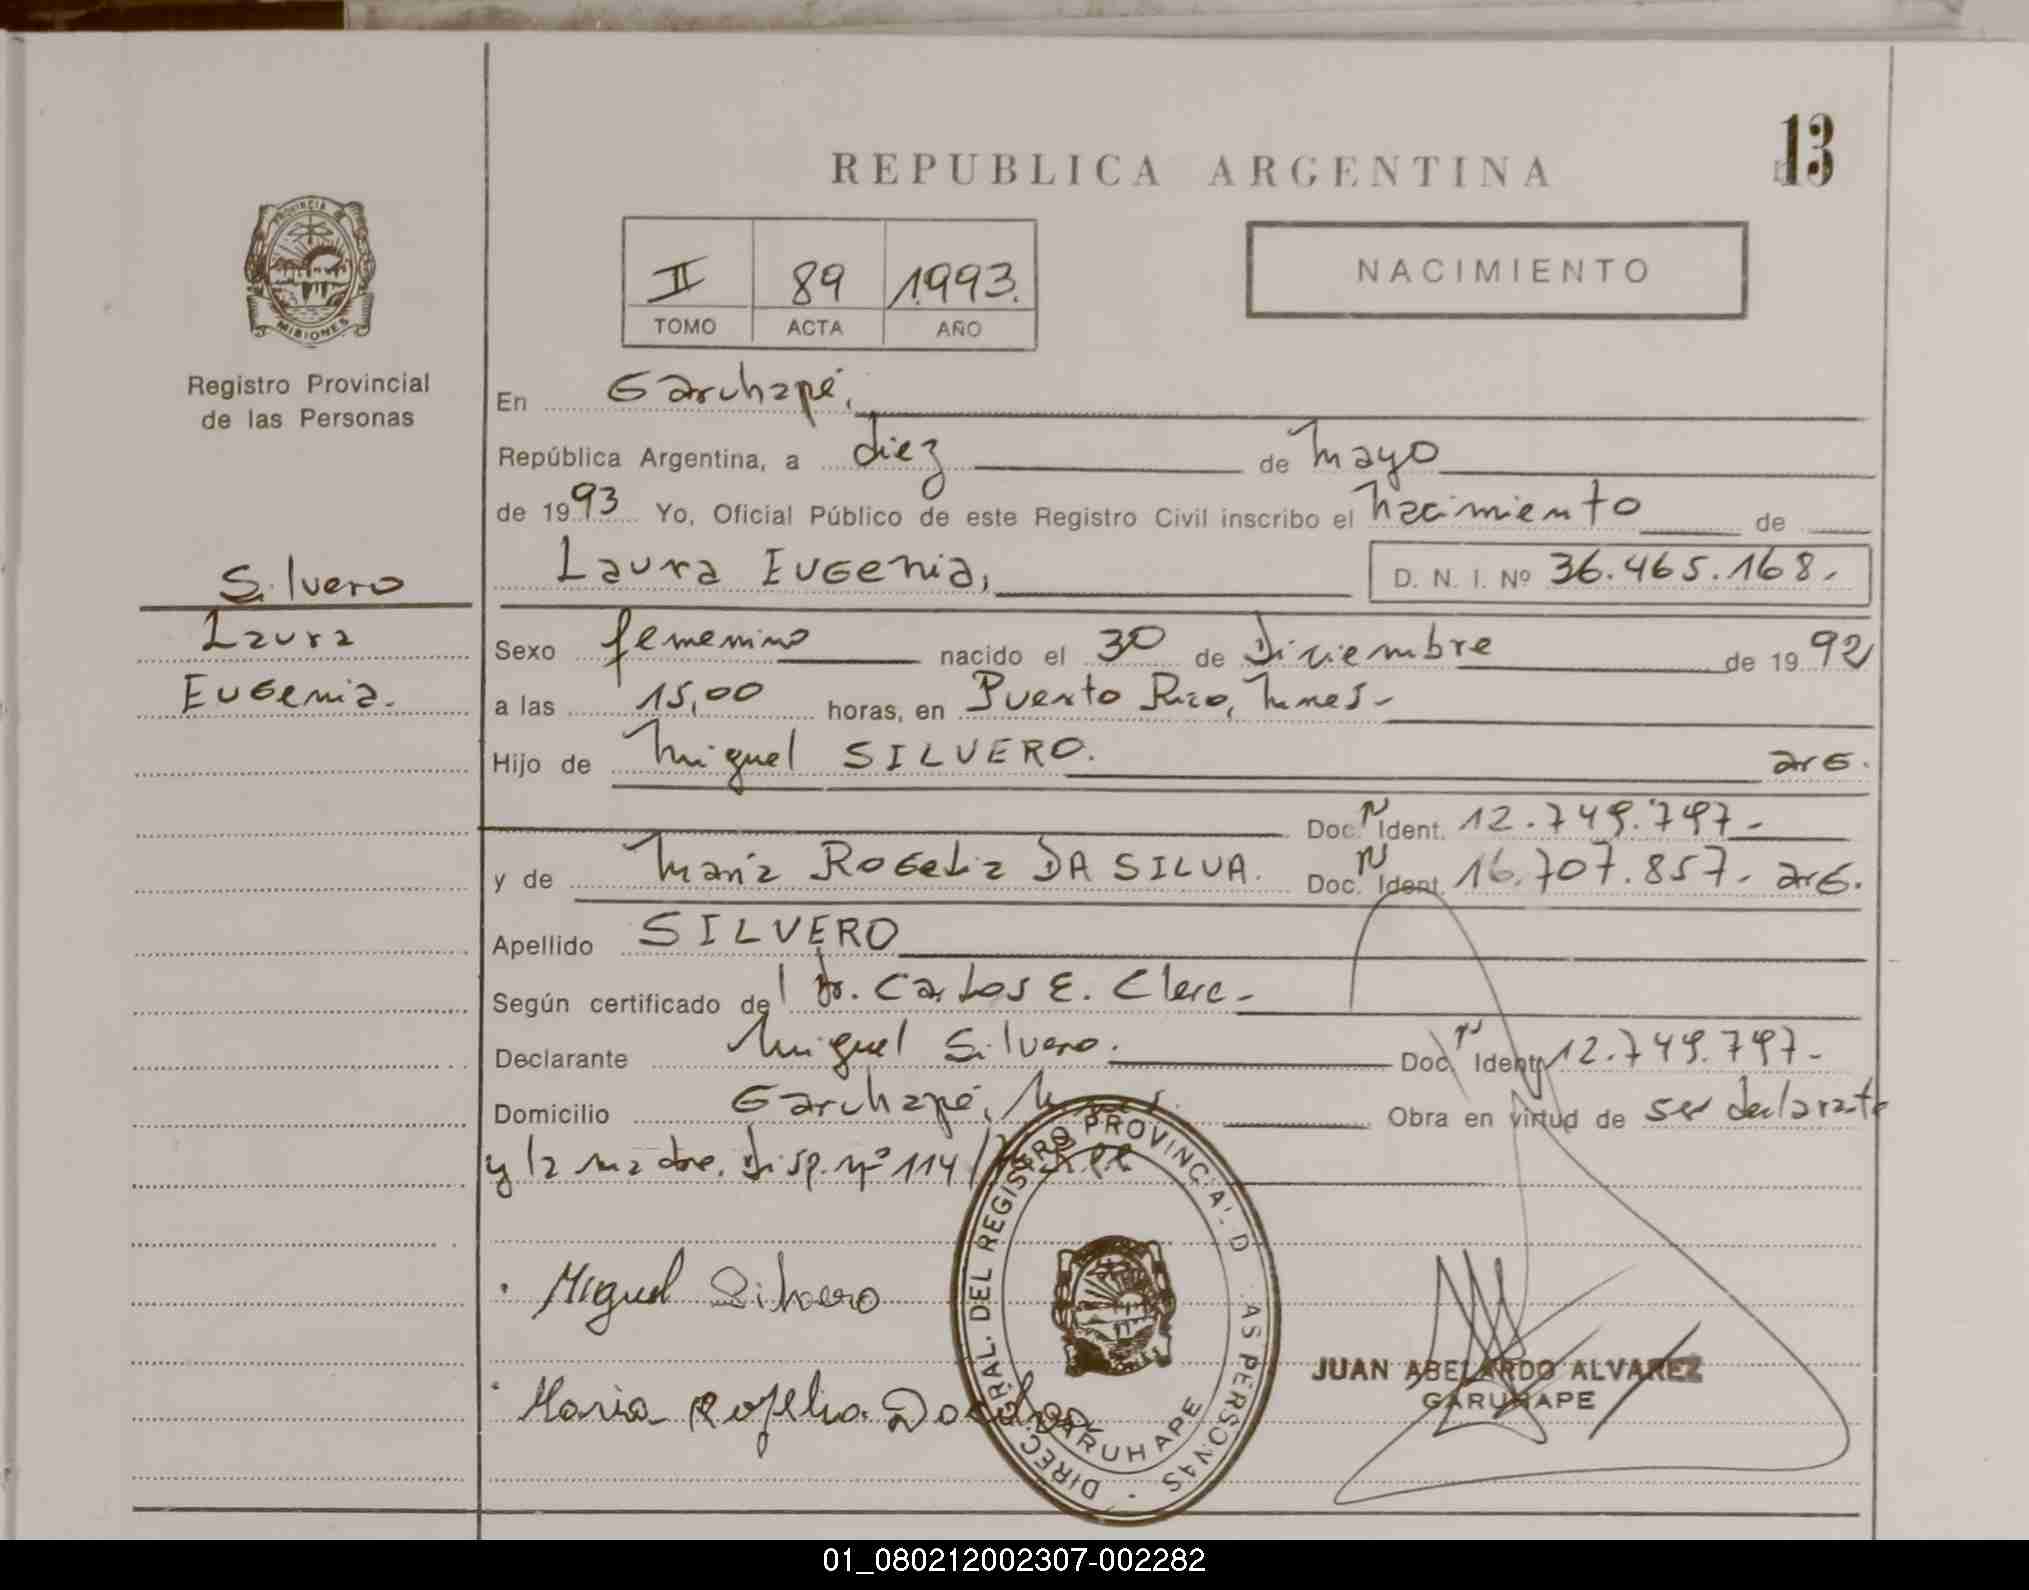 13
REPUBLICA ARGENTINA
PROVINCIA DE
MISIONES
Registro Provincial
de las Personas
II 89 1993.
TOMO ACTA AÑO
NACIMIENTO
En Garuhapé,
República Argentina, a diez de Mayo
de 1993 Yo, Oficial Público de este Registro Civil inscribo el Nacimiento de
Silvero
Laura
Eugenia.
Laura Eugenia, D. N. I. Nº 36.465.168.
Sexo femenino nacido el 30 de Diciembre de 1992
a las 15,00 horas, en Puerto Rico, Mnes-
Hijo de Miguel SILVERO. arg.
Doc. N Ident. 12.749.797-
y de María Rogelia DA SILVA. Doc. N Ident. 16.707.857- arg.
Apellido SILVERO
Según certificado del Dr. Carlos E. Clerc-
Declarante Miguel Silvero. Doc. N Ident. 12.749.797-
Domicilio Garuhapé, Mnes. Obra en virtud de ser declarante
y la madre. Disp. nº 114/
Miguel Silvero
Maria Rogelia Da Silva
DIREC. GRAL. DEL REGISTRO PROVINCIAL D AS PERSONAS
GARUHAPE
JUAN ABELARDO ALVAREZ
GARUHAPE
01_080212002307-002282